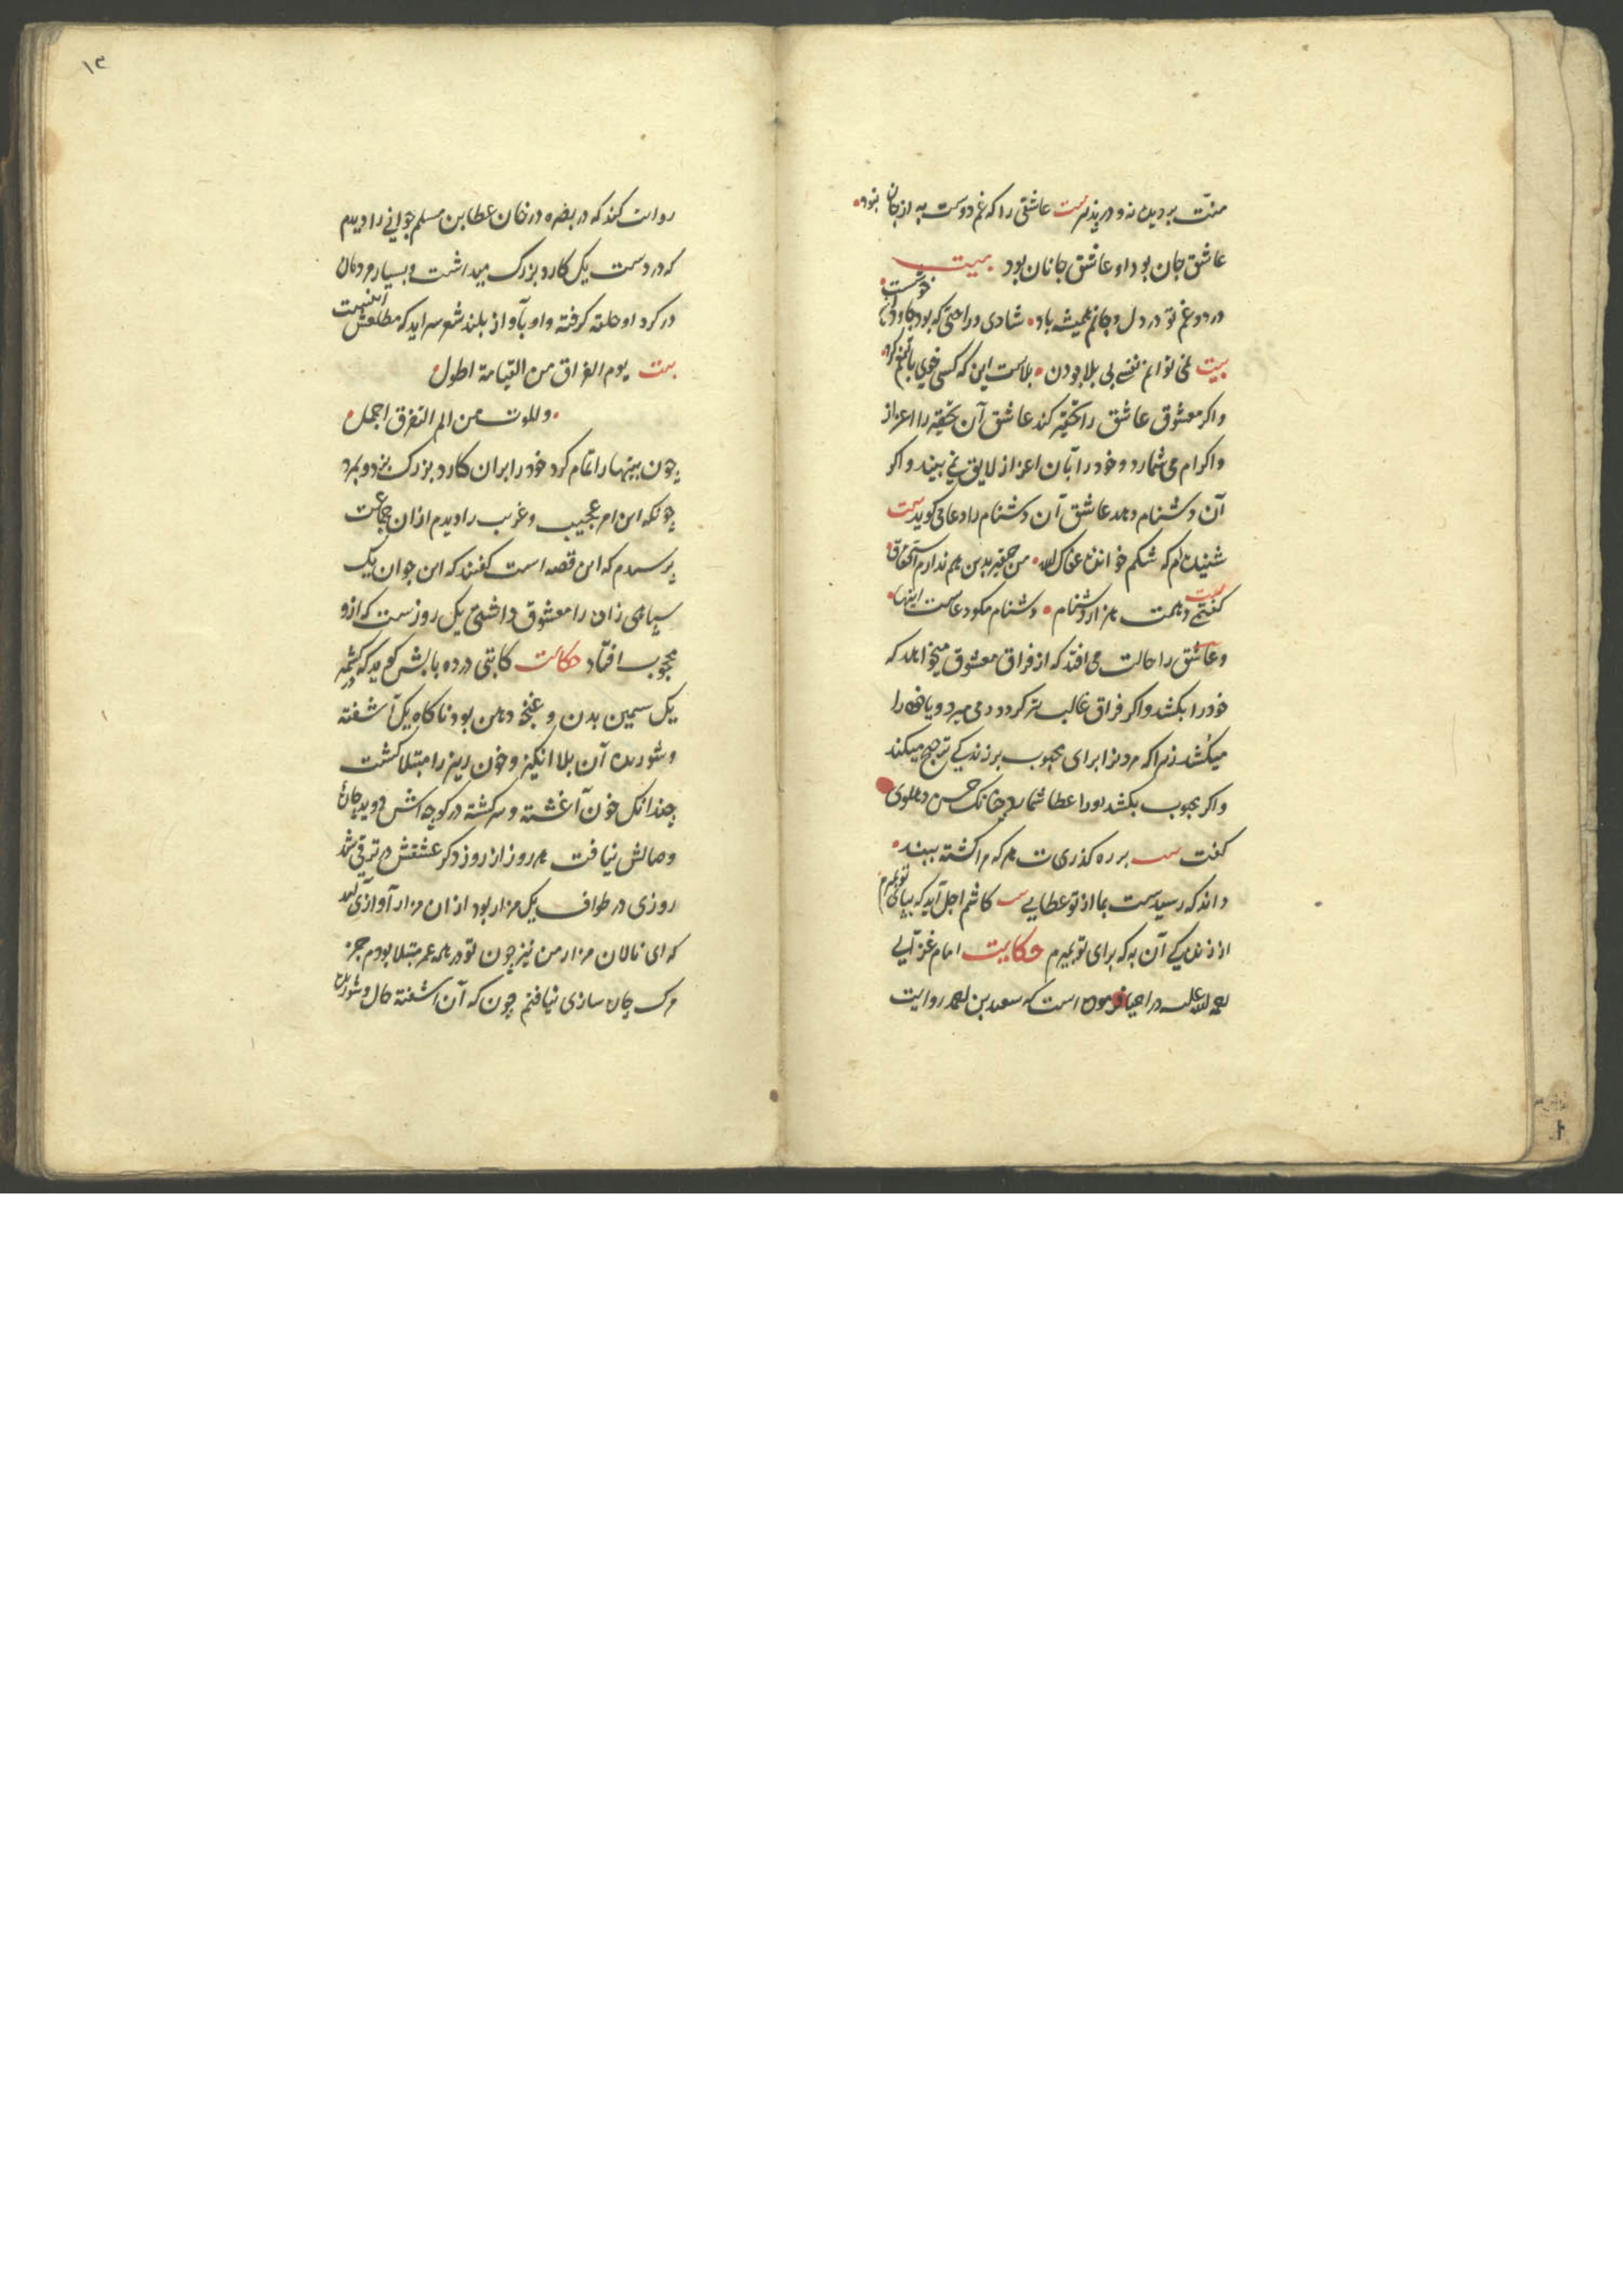 منت بر دیده نه و در پذیر بیت عاشقی را که غم دوست به از جان نبود
عاشق جان بود او عاشق جانان بود بیت
درد و غم تو در دل و جانم همیشه باد شادی و راحتی که بود جاودان خوشست
بیت نمی توانم نفسی بی بلا بودن بلاست این که کسی خوی با غم کرد
واکر معشوق عاشق را تحقیر کند عاشق آن تحقیر را اعزاز
واکرام می شمارد و خود را بآن اعزاز لایق نمی بیند و اکر
آن دشنام دهد عاشق آن دشنام را دعا می کوید بیت
شنیده ام که شکم خوانده عفاک الله من حقیر بدین هم ندارم استحقاق
بیت کفتی دهمت هزار دشنام دشنام مکو دعاست اینها
و عاشق را حالت می افتد که از فراق معشوق میخواهد که
خود را بکشد و اکر فراق غالب تر کردد می میرد و یا خود را
میکشد زیرا که مردن را برای محبوب بر زندکی ترجیح میکند
واکر محبوب بکشد او را عطا شمارد چنانک حسن دهلوی
کفت بیت بر ره کذریت هر که مرا کشته ببیند
داند که رسیدست بما از تو عطایی بیت کاشم اجل آید که بپای تو بمیرم
از زندکی آن به که برای تو بمیرم حکایت امام غزالی
رحمه الله علیه در احیا فرموده است که سعید بن احمد روایت
۱۳
روایت کند که در بصره در خان عطا بن مسلم جوانی را دیدم
که در دست یک کارد بزرک میداشت و بسیار مردمان
در کرد او حلقه کرفته و او بآواز بلند شعر سراید که مطلعش اینست
بیت یوم الفراق من القیامة اطول
والموت من الم التفرق اجمل
چون بیتها را تمام کرد خود را بران کارد بزرک بزد و بمرد
چونکه این امر عجیب و غریب را دیدم ازان جماعت
پرسیدم که این قصه است کفتند که این جوان یک
سپاهی زاده را معشوق داشتی یک روزست که ازو
محجوب افتاد حکایت کاتبی در ده بابش کوید که در کشمیر
یک سمین بدن و غنچه دهن بود ناکاه یک آشفته
و شوریده آن بلا انکیز و خون ریز را مبتلا کشت
چندانک خون آغشته و سرکشته در کوچه اش دوید
وصالش نیافت هر روز از روز دکر عشقش در ترقی شد
روزی در طواف یک مزار بود ازان مزار آوازی آمد
که ای نالان مزار من نیز چون تو در همه عمر مبتلا بودم جز
مرک چاره سازی نیافتم چون که آن آشفته حال و شوریده